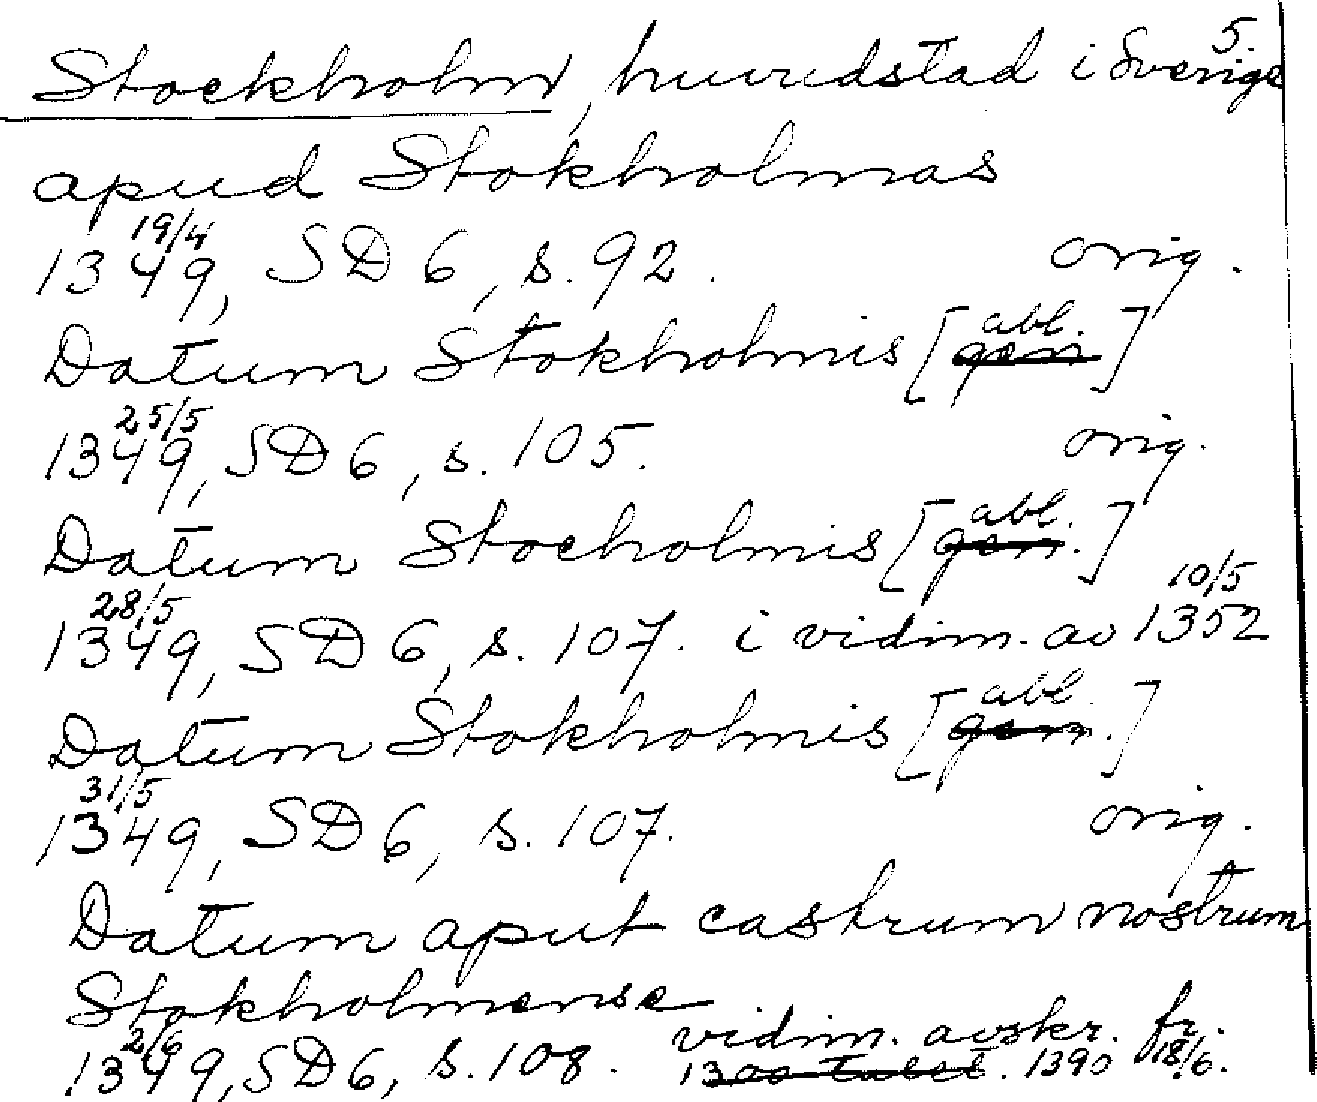 5.
Stockholm, huvudstad i Sverige
apud Stokholmas
19/4
1349, SD 6, s. 92. orig.
abl.
Datum Stokholmis [gen]
25/5
1349, SD 6, s. 105. orig.
abl.
Datum Stocholmis [gen.]
28/5 10/5
1349, SD 6, s. 107. i vidim. av 1352
abl.
Datum Stokholmis [gen.]
31/5
1349, SD 6, s. 107. orig.
Datum aput castrum nostrum
Stokholmense
2/6 vidim. avskr. fr.
1349, SD 6, s. 108. 1300 talet. 1390 18/6.